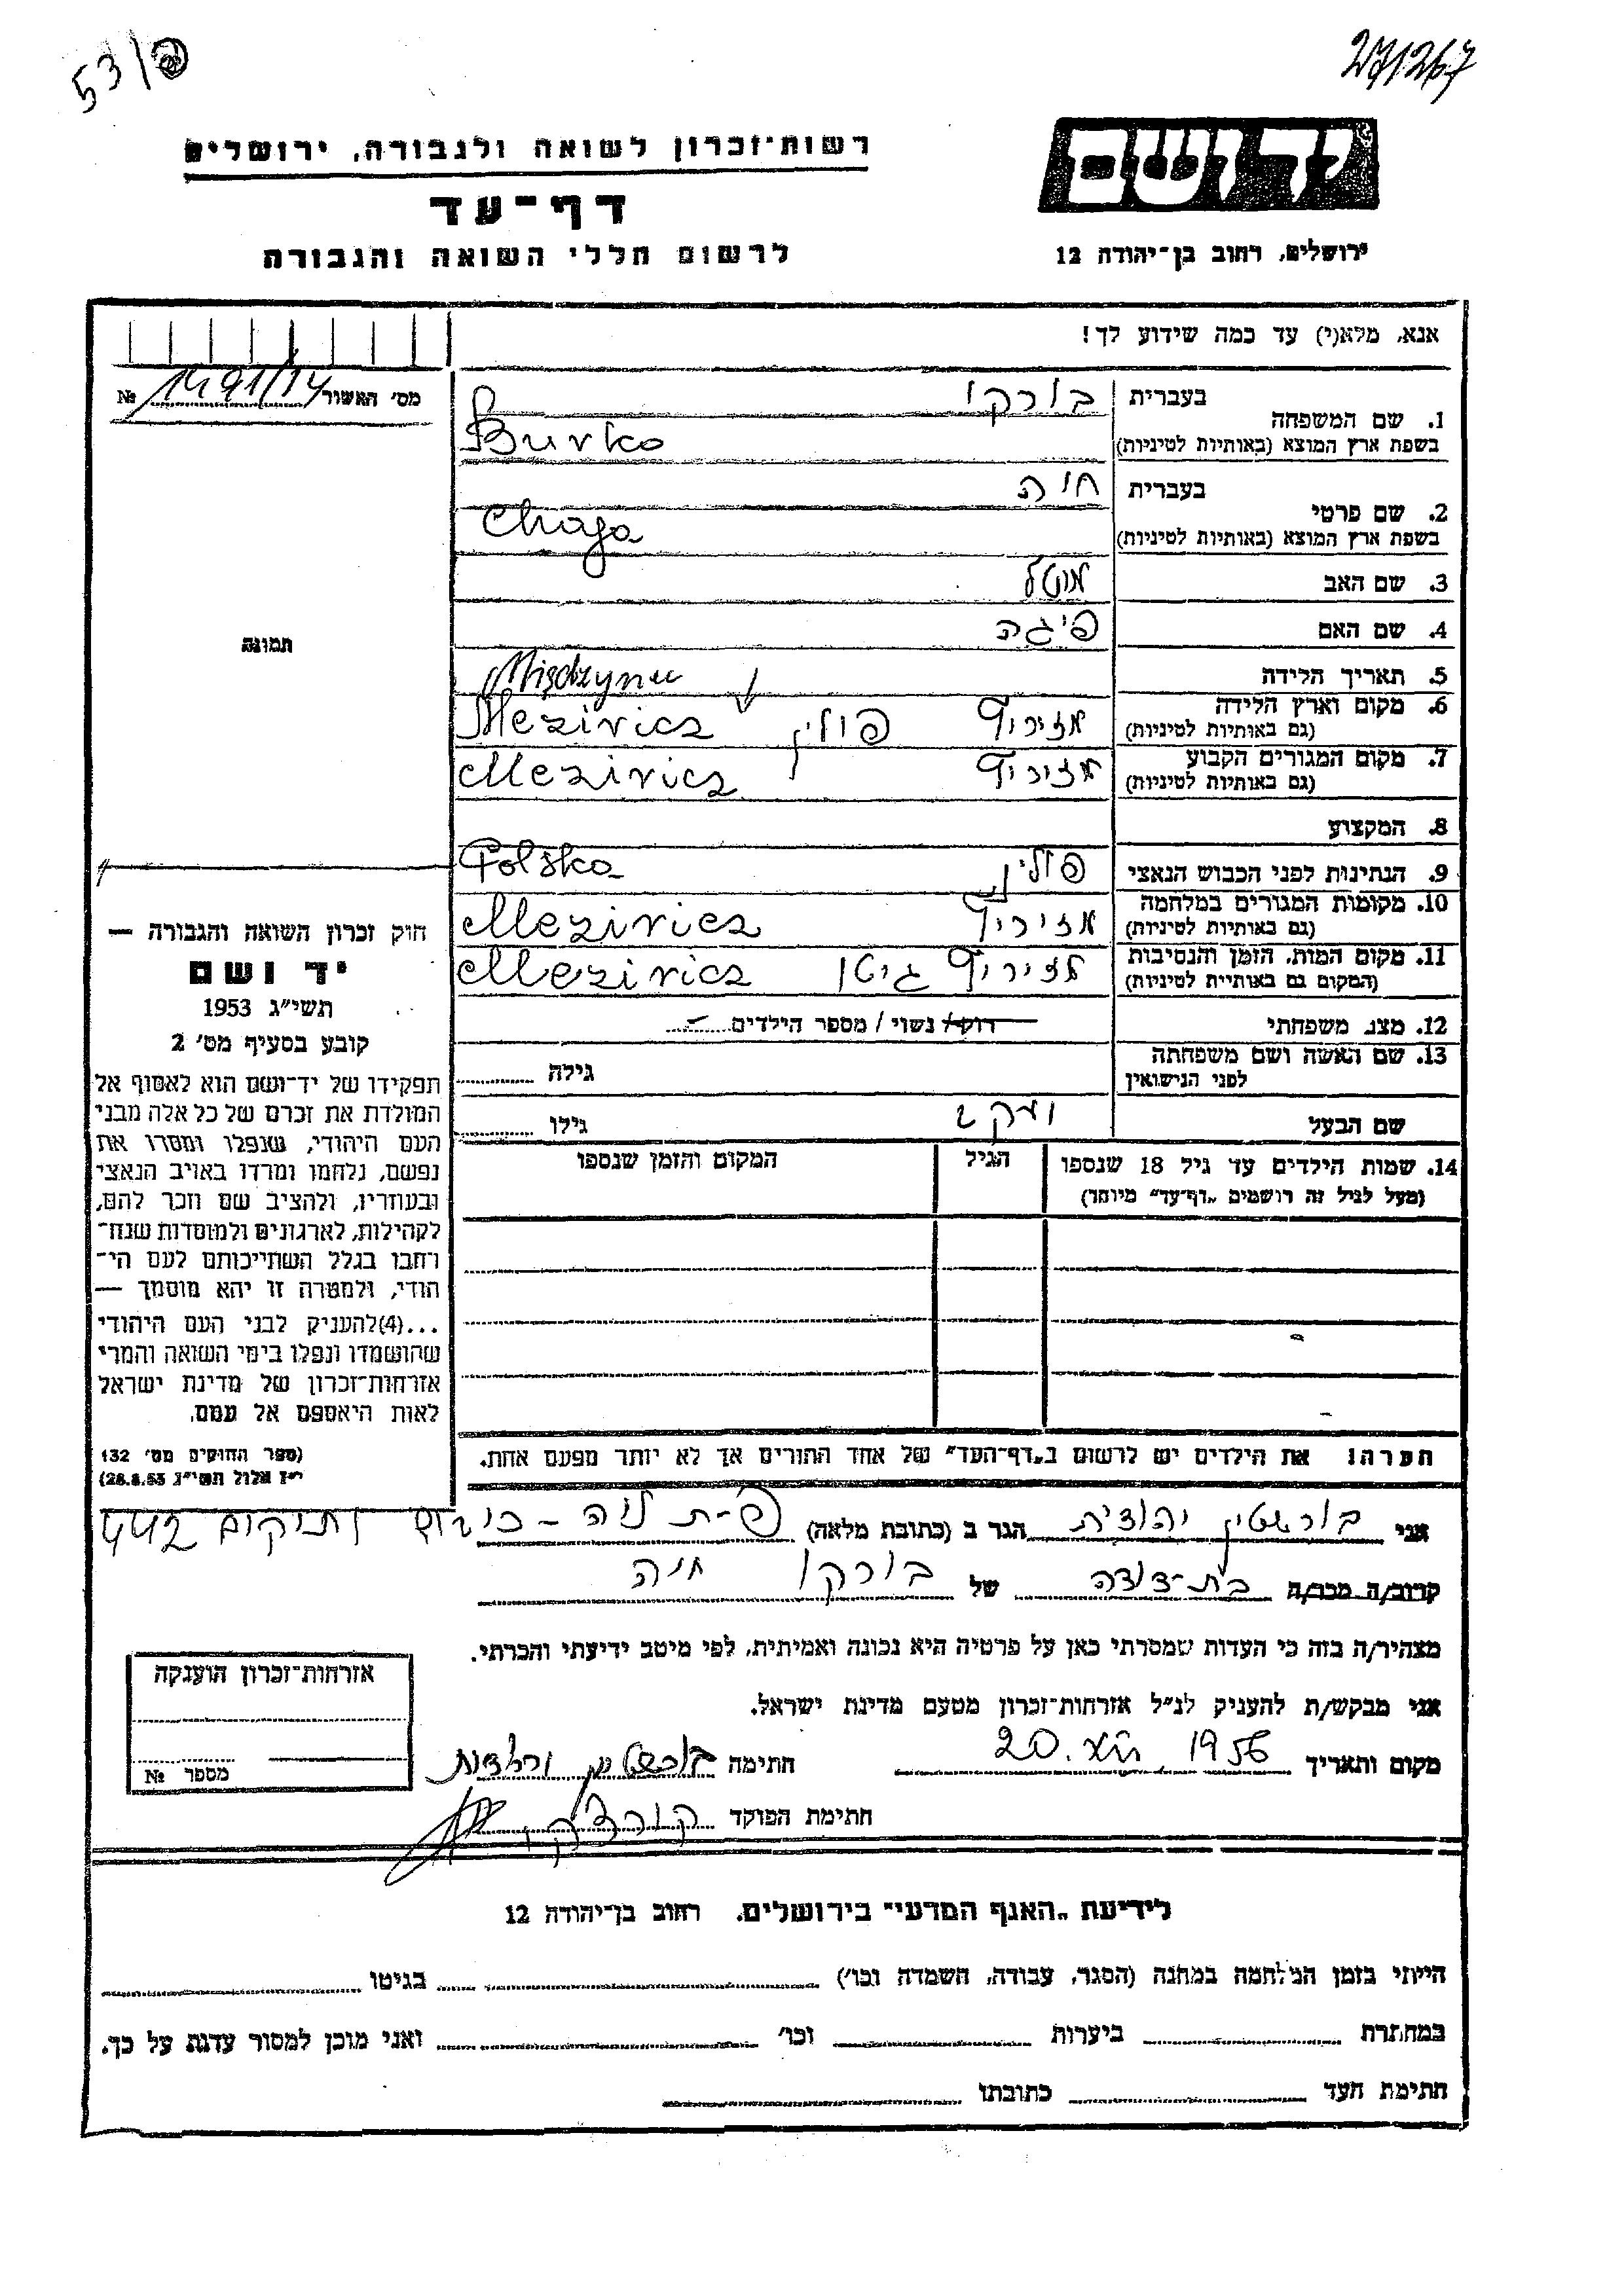 53/
271267
רשות־זכרון לשואה ולגבורה, ירושלים
יד ושם
דף־עד
לרשום חללי השואה והגבורה
ירושלים, רחוב בן־יהודה 12
אנא, מלא(י) עד כמה שידוע לך!
מס׳ האשור 1491/14 №
1. שם המשפחה בעברית בורקו
בשפת ארץ המוצא (באותיות לטיניות) Burko
2. שם פרטי בעברית חיה
בשפת ארץ המוצא (באותיות לטיניות) Chaja
3. שם האב מוטל
4. שם האם פיגה
5. תאריך הלידה
Międzyrzec
6. מקום וארץ הלידה (גם באותיות לטיניות) מזיריץ פולין Mezirics
7. מקום המגורים הקבוע (גם באותיות לטיניות) מזיריץ Mezirics
8. המקצוע
9. הנתינות לפני הכבוש הנאצי פולין Polska
10. מקומות המגורים במלחמה (גם באותיות לטיניות) מזיריץ Mezirics
11. מקום המות, הזמן והנסיבות (המקום גם באותיות לטיניות) מזיריץ גיטו Mezirics
12. מצב משפחתי רווק / נשוי / מספר הילדים
13. שם האשה ושם משפחתה לפני הנישואין גילה
שם הבעל גילו
14. שמות הילדים עד גיל 18 שנספו
(מעל לגיל זה רושמים „דף־עד" מיוחד)
הגיל
המקום והזמן שנספו
תמונה
חוק זכרון השואה והגבורה —
יד ושם
תשי״ג 1953
קובע בסעיף מס׳ 2
תפקידו של יד־ושם הוא לאסוף אל
המולדת את זכרם של כל אלה מבני
העם היהודי, שנפלו ומסרו את
נפשם, נלחמו ומרדו באויב הנאצי
ובעוזריו, ולהציב שם וזכר להם,
לקהילות, לארגונים ולמוסדות שנח־
רבו בגלל השתייכותם לעם הי־
הודי, ולמטרה זו יהא מוסמך —
...(4)להעניק לבני העם היהודי
שהושמדו ונפלו בימי השואה והמרי
אזרחות־זכרון של מדינת ישראל
לאות היאספם אל עמם.
(ספר החוקים מס׳ 132
י״ז אלול תשי״ג 28.8.53)
הערה! את הילדים יש לרשום ב„דף־העד" של אחד ההורים אך לא יותר מפעם אחת.
אני בורשטין יהודית הגר ב (כתובת מלאה) פ-ת ותיקים 442
קרוב/ה מכר/ה בת-דודה של בורקו חיה
מצהיר/ה בזה כי העדות שמסרתי כאן על פרטיה היא נכונה ואמיתית, לפי מיטב ידיעתי והכרתי.
אני מבקש/ת להעניק לנ״ל אזרחות־זכרון מטעם מדינת ישראל.
מקום ותאריך 20. 1956 חתימה בורשטין יהודית
חתימת הפוקד
אזרחות־זכרון הוענקה
מספר №
לידיעת „האגף המדעי" בירושלים, רחוב בן־יהודה 12
הייתי בזמן המלחמה במחנה (הסגר, עבודה, השמדה וכו׳) בגיטו
במחתרת ביערות וכו׳ ואני מוכן למסור עדות על כך.
חתימת העד כתובתו